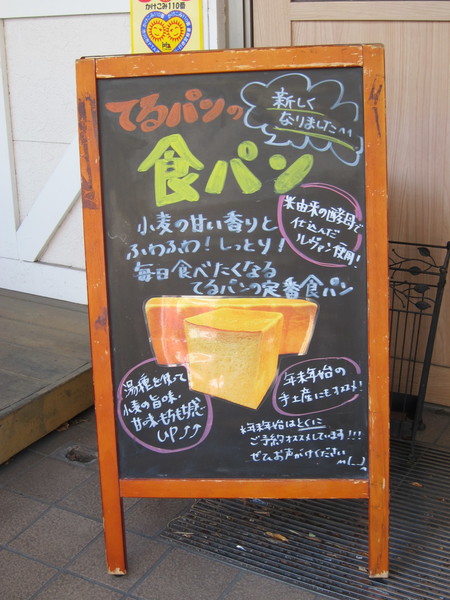 かけこみ110番
てるパンの
新しく
なりました^^
食パン
米由来の酵母で
仕込んだ
ルヴァン使用!
小麦の甘い香りと
ふわふわ!しっとり!
毎日食べたくなる
てるパンの定番食パン
湯種を使って
小麦の旨味・
甘味もちもち感
UP↑↑
年末年始の
手土産にもオススメ!
年末年始はとくに
ご予約オススメしています!!!
ぜひお声がけください
m(__)m